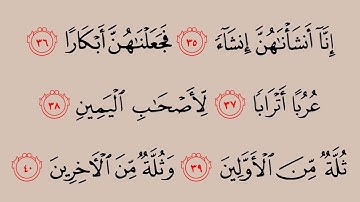 إِنَّآ أَنشَأْنَٰهُنَّ إِنشَآءً ٣٥ فَجَعَلْنَٰهُنَّ أَبْكَارًا ٣٦
عُرُبًا أَتْرَابًا ٣٧ لِّأَصْحَٰبِ ٱلْيَمِينِ ٣٨
ثُلَّةٌ مِّنَ ٱلْأَوَّلِينَ ٣٩ وَثُلَّةٌ مِّنَ ٱلْءَاخِرِينَ ٤٠